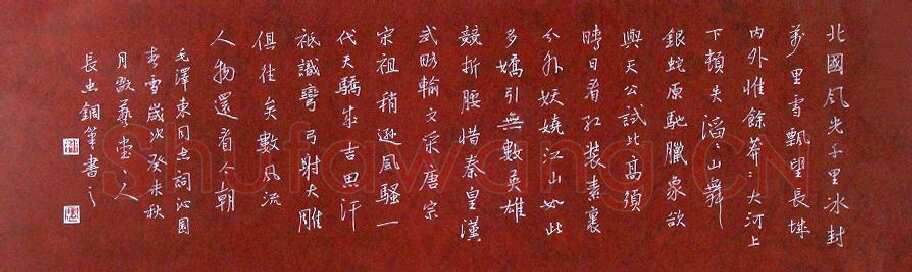 北國風光千里冰封
萬里雪飄望長城
內外惟餘莽〻大河上
下頓失滔〻山舞
銀蛇原馳臘象欲
與天公試比高須
晴日看紅裝素裹
分外妖嬈江山如此
多嬌引無數英雄
競折腰惜秦皇漢
武略輸文采唐宗
宋祖稍遜風騷一
代天驕成吉思汗
祇識彎弓射大雕
俱往矣數風流
人物還看今朝
毛澤東同志詞沁園
春雪歲次癸未秋
月藝堂人
長虫鋼筆書之
Shufawang.CN